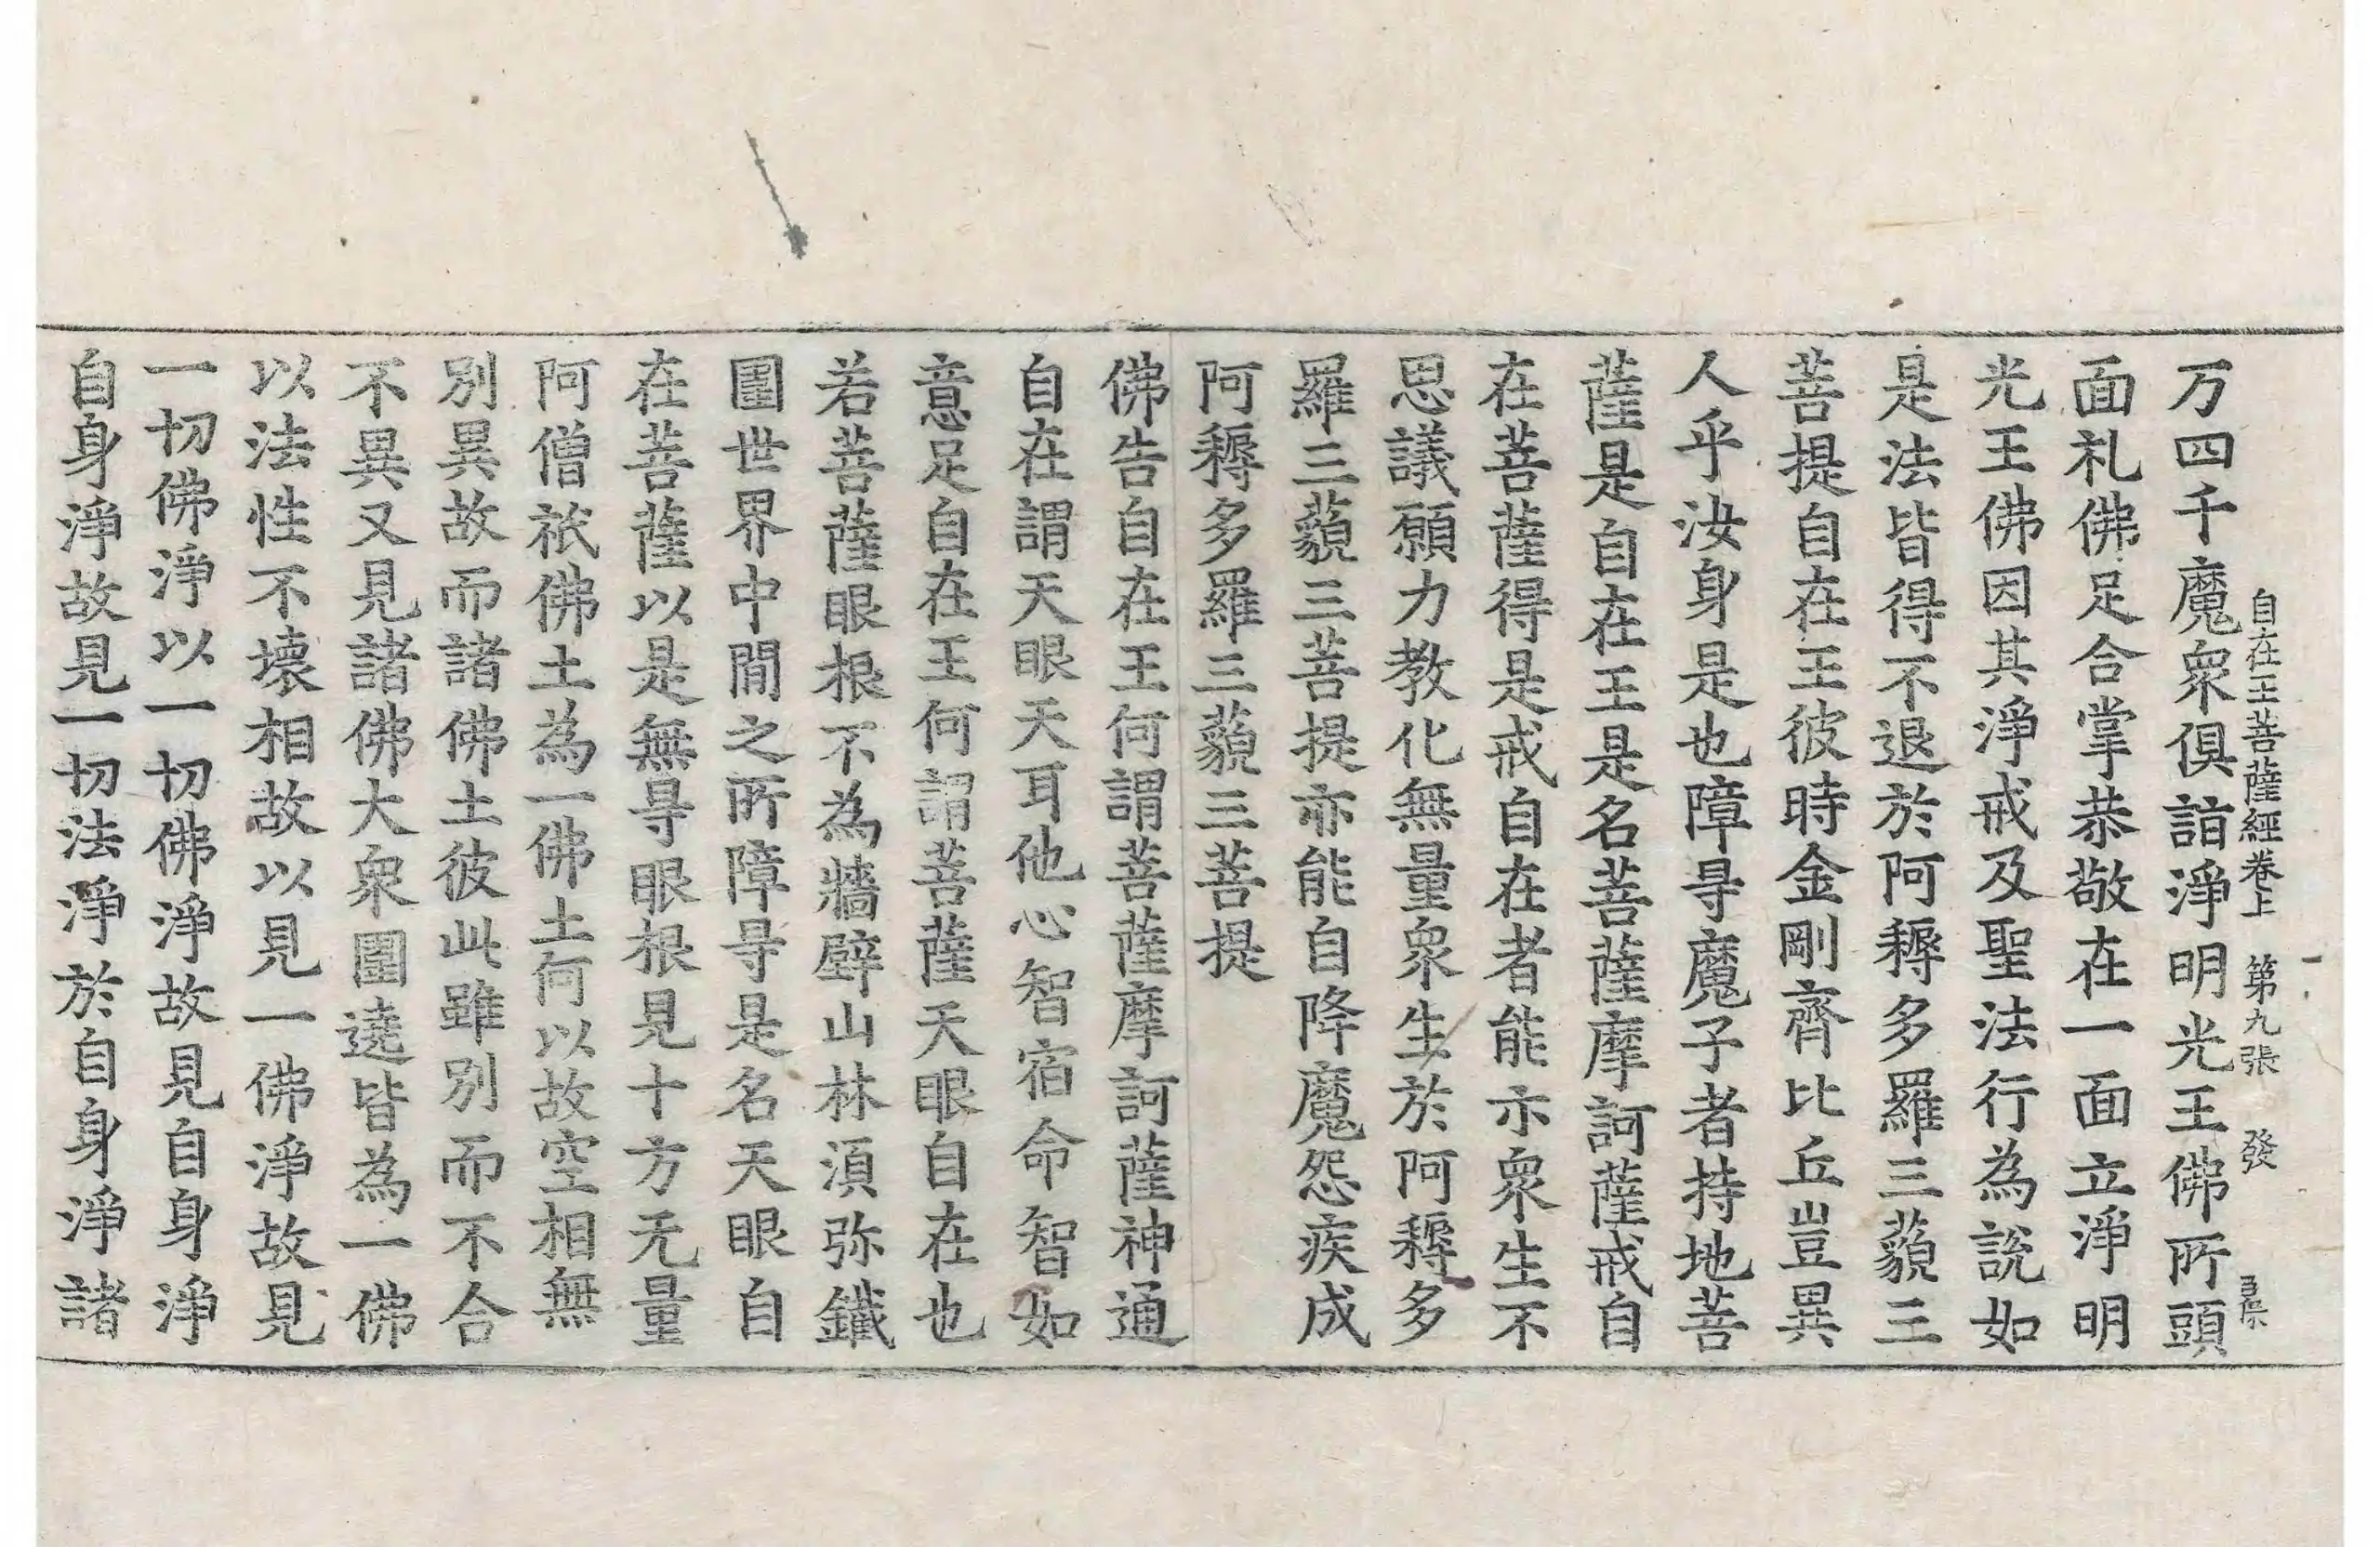 自在王菩薩經卷上 第九張 發
万四千魔衆俱詣淨明光王佛所頭
面礼佛足合掌恭敬在一面立淨明
光王佛因其淨戒及聖法行為說如
是法皆得不退於阿耨多羅三藐三
菩提自在王彼時金剛齊比丘豈異
人乎汝身是也障㝵魔子者持地菩
薩是自在王是名菩薩摩訶薩戒自
在菩薩得是戒自在者能示衆生不
思議願力教化無量衆生於阿耨多
羅三藐三菩提亦能自降魔怨疾成
阿耨多羅三藐三菩提
佛告自在王何謂菩薩摩訶薩神通
自在謂天眼天耳他心智宿命智如
意足自在王何謂菩薩天眼自在也
若菩薩眼根不為牆壁山林湏弥鐵
圍世界中間之所障㝵是名天眼自
在菩薩以是無㝵眼根見十方无量
阿僧祇佛土為一佛土何以故空相無
別異故而諸佛土彼此雖別而不合
不異又見諸佛大衆圍遶皆為一佛
以法性不壞相故以見一佛淨故見
一切佛淨以一切佛淨故見自身淨
自身淨故見一切法淨於自身淨諸